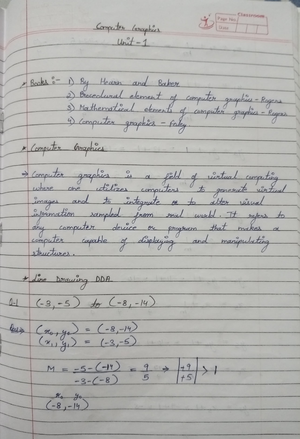 Classroom
Page No.
Date
Computer Graphics
Unit - 1
* Books :- 1) By Hearn and Baker
2) Procedural element of computer graphics - Rogers
3) Mathematical element of computer graphics - Rogers
4) Computer graphics - Foley
* Computer Graphics
→ Computer graphics is a field of virtual computing
where one utilizes computers to generate virtual
images and to integrate or to alter visual
information sampled from real world. It refers to
any computer device or program that makes a
computer capable of displaying and manipulating
structures.
* Line Drawing DDA.
Q-1 (-3, -5) to (-8, -14)
(x₀, y₀) = (-8, -14)
(x₁, y₁) = (-3, -5)
M = -5-(-14) / -3-(-8) = 9/5 ⇒ |+9/+5| > 1
x₀ y₀
(-8, -14)